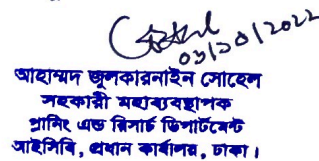 ০১/১০/২০২২
আহাম্মদ জুলকারনাইন সোহেল
সহকারী মহাব্যবস্থাপক
প্লানিং এন্ড রিসার্চ ডিপার্টমেন্ট
আইসিবি, প্রধান কার্যালয়, ঢাকা।